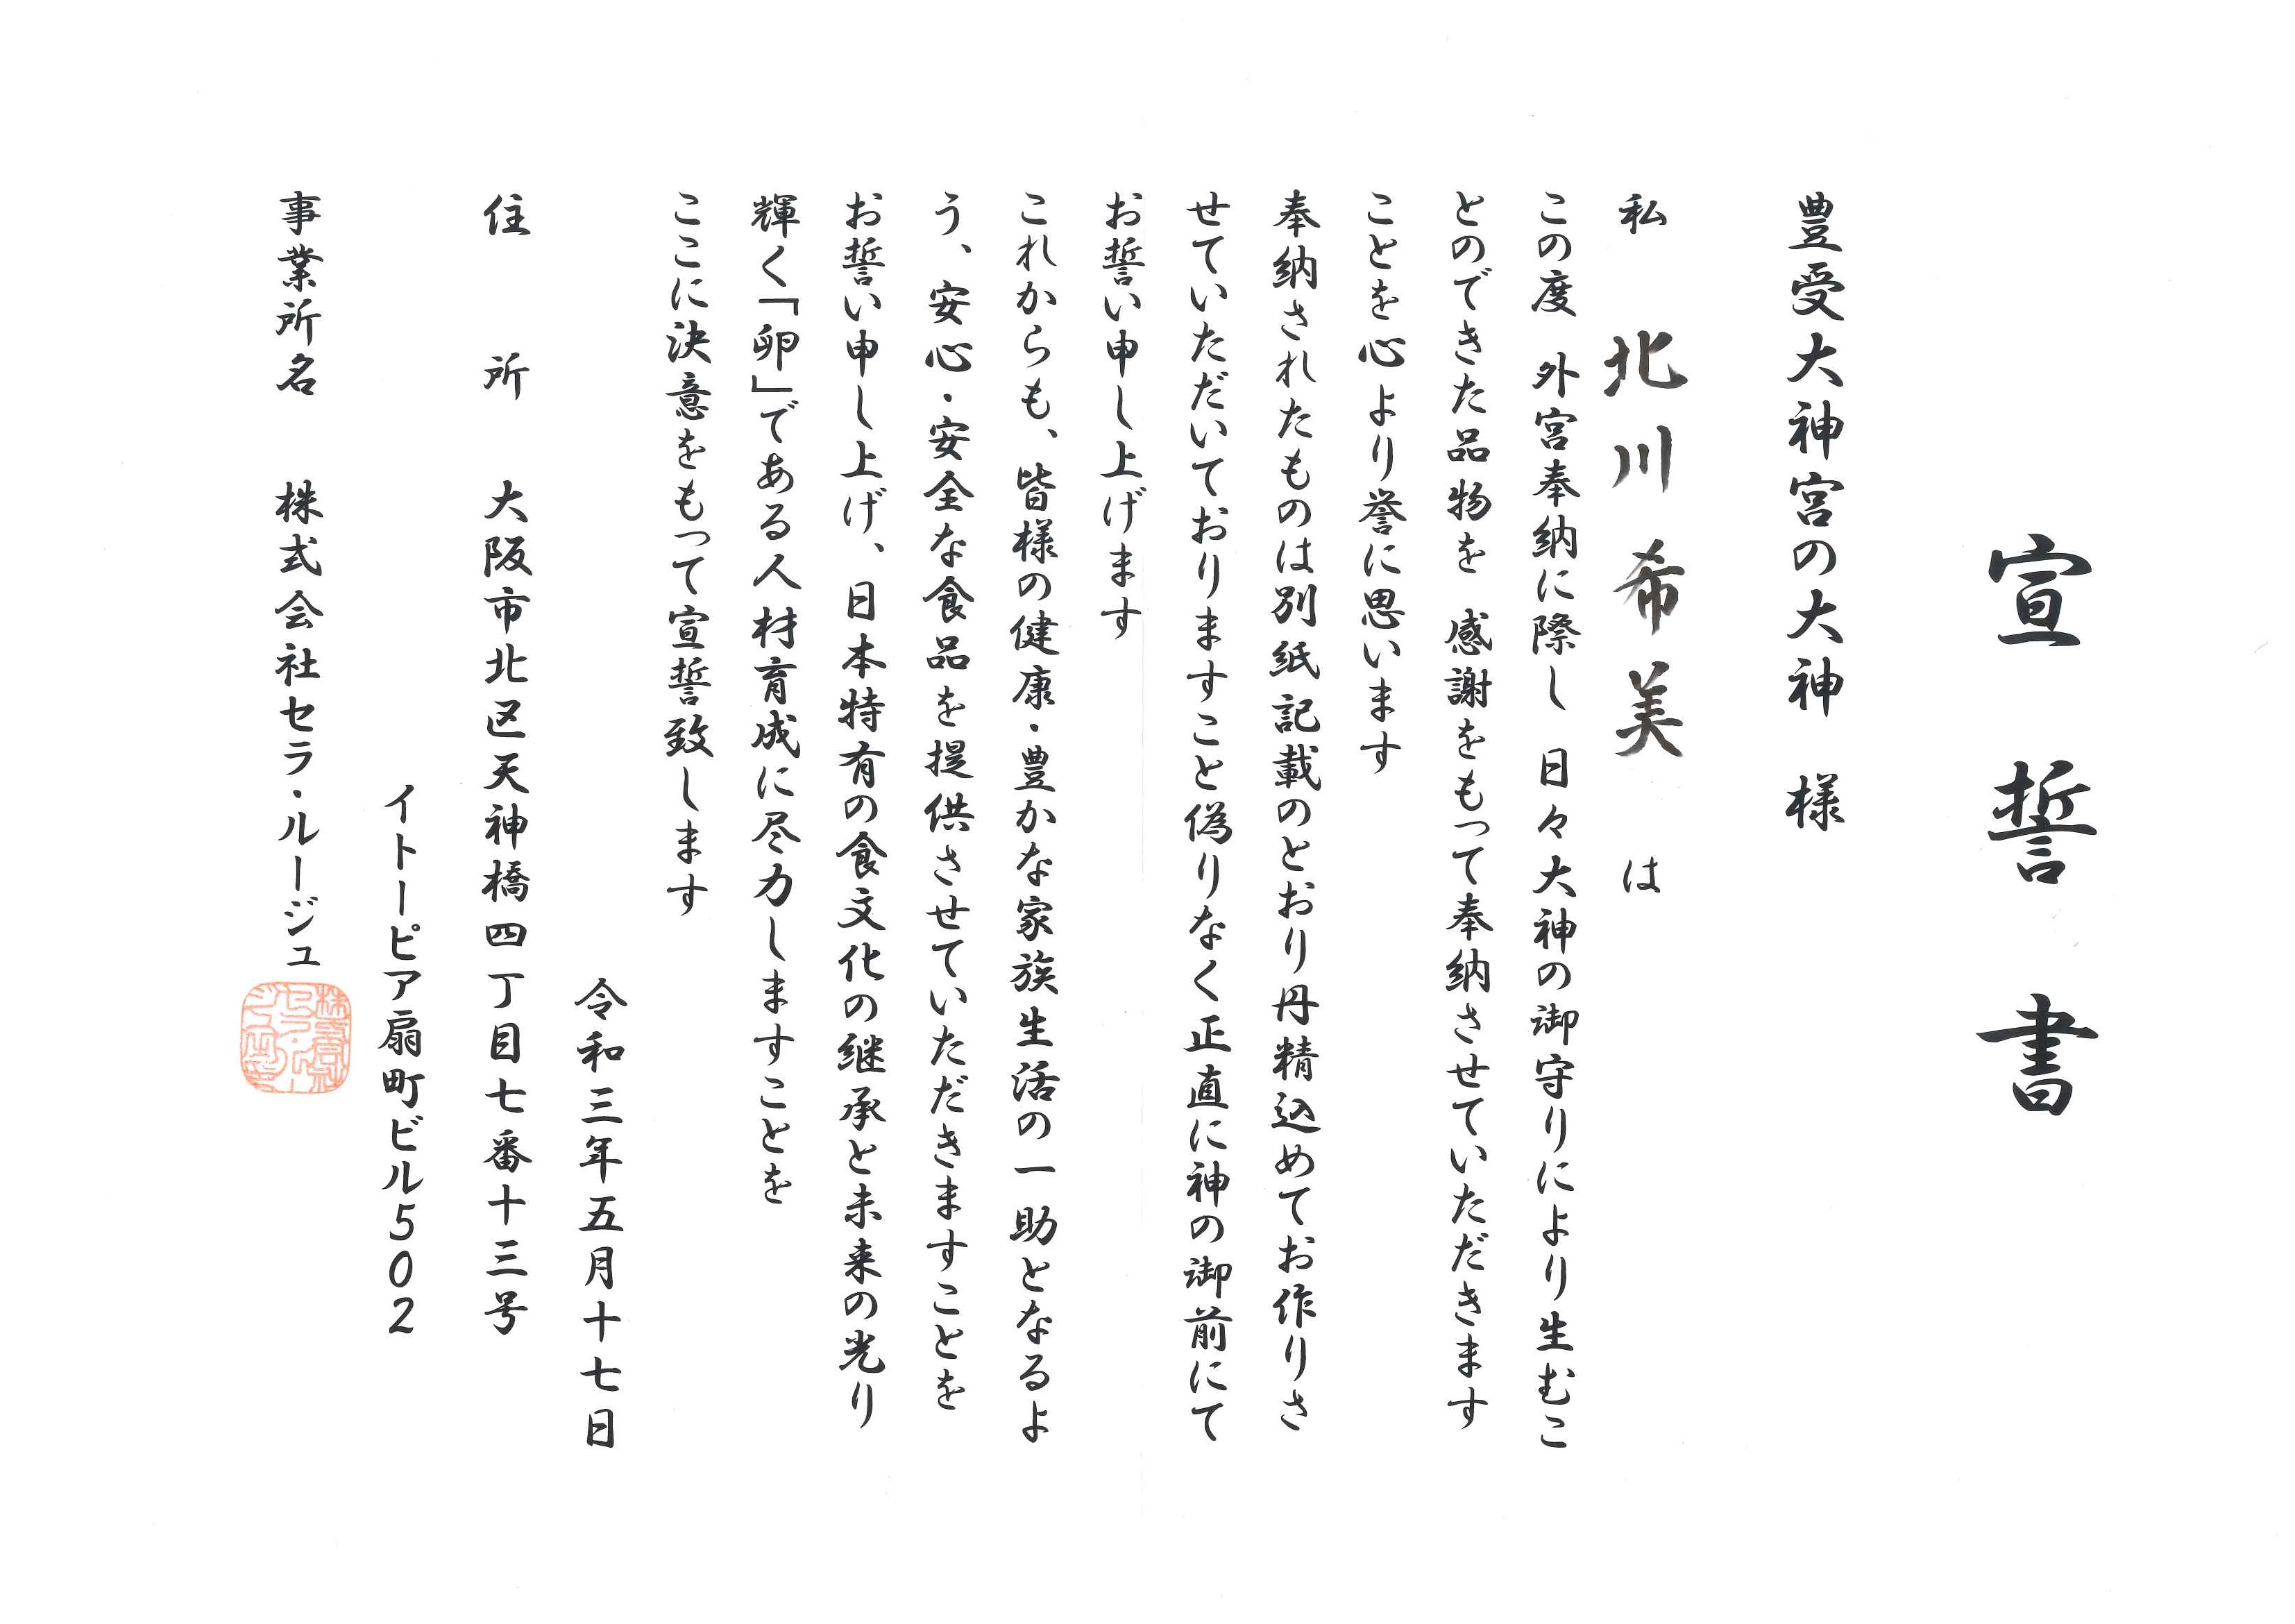 宣誓書
豊受大神宮の大神　様
私　北川希美　は
この度　外宮奉納に際し　日々大神の御守りにより生むこ
とのできた品物を　感謝をもって奉納させていただきます
ことを心より誉に思います
奉納されたものは別紙記載のとおり丹精込めてお作りさ
せていただいておりますこと偽りなく正直に神の御前にて
お誓い申し上げます
これからも、皆様の健康・豊かな家族生活の一助となるよ
う、安心・安全な食品を提供させていただきますことを
お誓い申し上げ、日本特有の食文化の継承と未来の光り
輝く「卵」である人材育成に尽力しますことを
ここに決意をもって宣誓致します
令和三年五月十七日
住　所　大阪市北区天神橋四丁目七番十三号
イトーピア扇町ビル502
事業所名　株式会社セラ・ルージュ